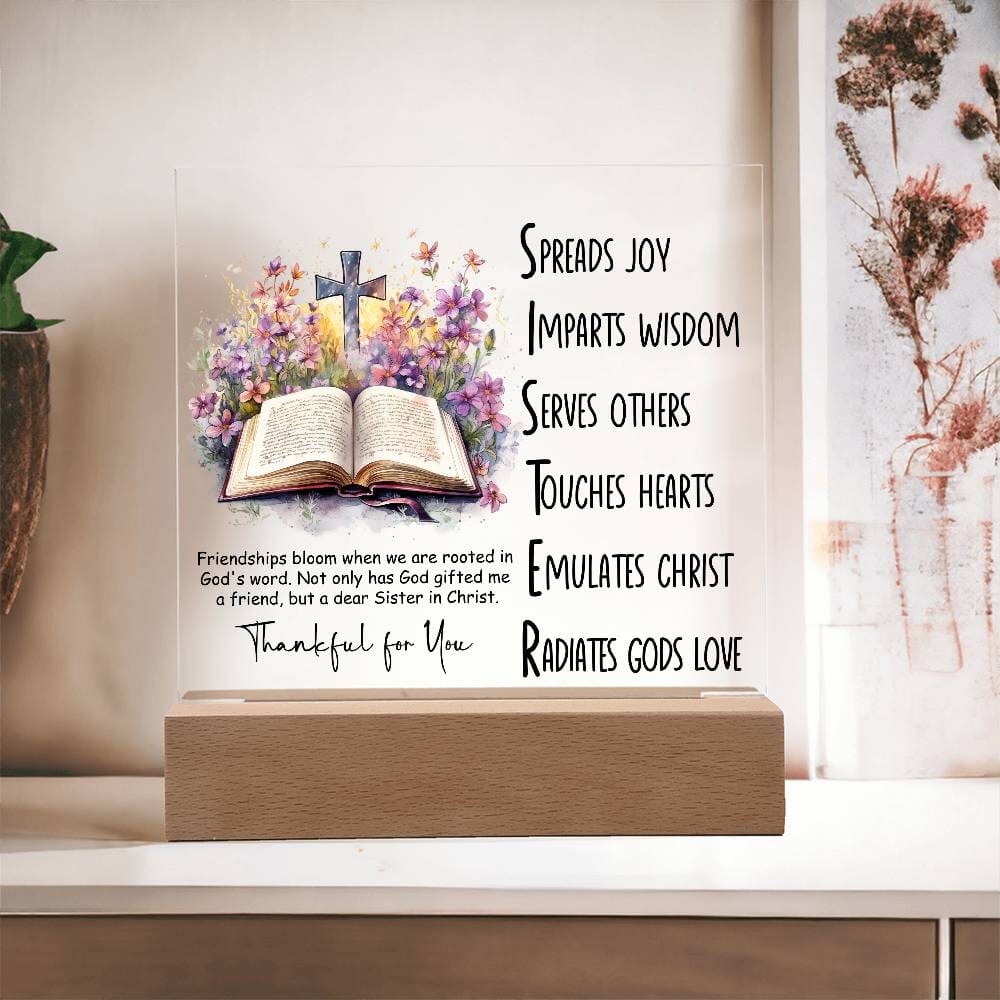 Spreads joy
Imparts wisdom
Serves others
Touches hearts
Emulates Christ
Radiates Gods love
Friendships bloom when we are rooted in
God's word. Not only has God gifted me
a friend, but a dear Sister in Christ.
Thankful for You